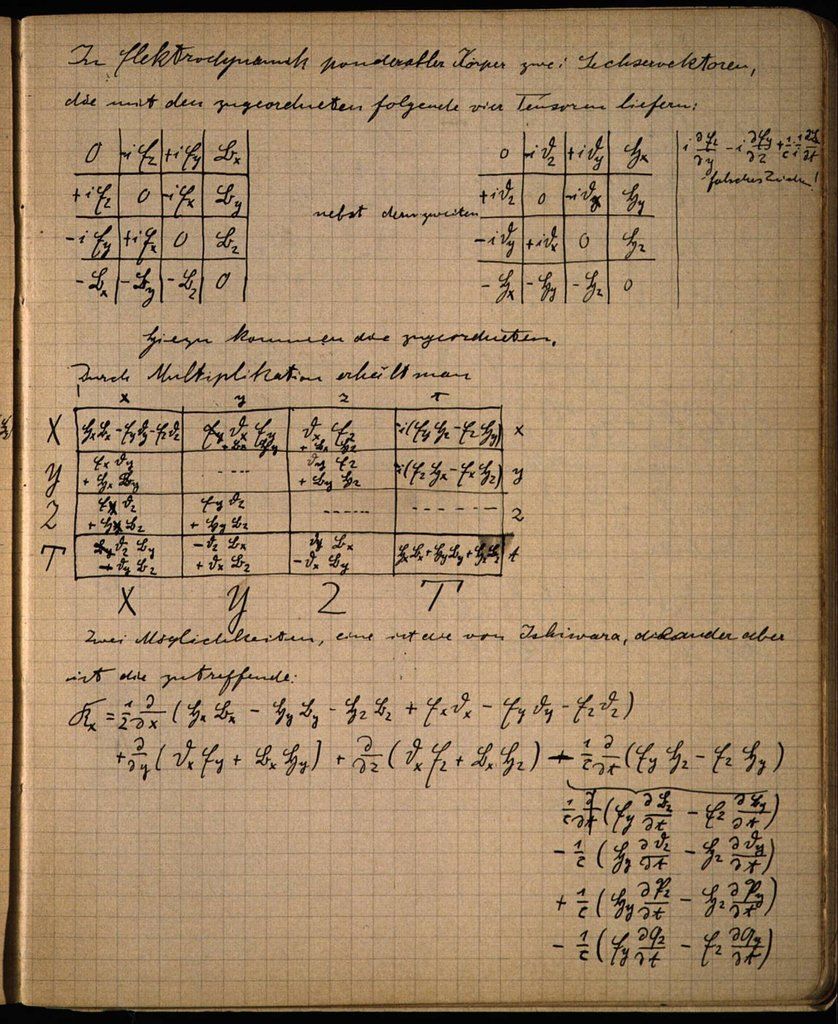 In Elektrodynamik ponderabler Körper zwei Sechservektoren,
die mit den zugeordneten folgende vier Tensoren liefern:
0 -i𝔈z +i𝔈y 𝔅x
+i𝔈z 0 -i𝔈x 𝔅y
-i𝔈y +i𝔈x 0 𝔅z
-𝔅x -𝔅y -𝔅z 0
nebst dem zweiten
0 -i𝔇z +i𝔇y ℌx
+i𝔇z 0 -i𝔇x ℌy
-i𝔇y +i𝔇x 0 ℌz
-ℌx -ℌy -ℌz 0
i ∂𝔈z/∂y - i ∂𝔈y/∂z
falsches Zeichen!
Hiezu kommen die zugeordneten.
Durch Multiplikation erhält man
x y z t
X ℌx𝔅x-𝔈y𝔇y-𝔈z𝔇z 𝔇x 𝔈y + 𝔅x ℌy 𝔇x 𝔈z + 𝔅x ℌz -i(𝔈yℌz-𝔈zℌy) x
Y 𝔈x 𝔇y + ℌx 𝔅y ---- 𝔇y 𝔈z + 𝔅y ℌz -i(𝔈zℌx-𝔈xℌz) y
Z 𝔈x 𝔇z + ℌx 𝔅z 𝔈y 𝔇z + ℌy 𝔅z ----- ------- z
T 𝔇z 𝔅y - 𝔇y 𝔅z -𝔇z 𝔅x + 𝔇x 𝔅z 𝔇y 𝔅x - 𝔇x 𝔅y ℌx𝔅x+ℌy𝔅y+ℌz𝔅z t
X Y Z T
Zwei Möglichkeiten, eine ist die von Ishiwara, die ander aber
ist die zutreffende:
𝔎x = 1/2 ∂/∂x (ℌx𝔅x - ℌy𝔅y - ℌz𝔅z + 𝔈x𝔇x - 𝔈y𝔇y - 𝔈z𝔇z)
+ ∂/∂y (𝔇x𝔈y + 𝔅xℌy) + ∂/∂z (𝔇x𝔈z + 𝔅xℌz) - 1/c ∂/∂t (𝔈yℌz - 𝔈zℌy)
1/c (𝔈y ∂𝔅z/∂t - 𝔈z ∂𝔅y/∂t)
- 1/c (ℌy ∂𝔇z/∂t - ℌz ∂𝔇y/∂t)
+ 1/c (ℌy ∂𝔓z/∂t - ℌz ∂𝔓y/∂t)
- 1/c (𝔈y ∂𝔮z/∂t - 𝔈z ∂𝔮y/∂t)